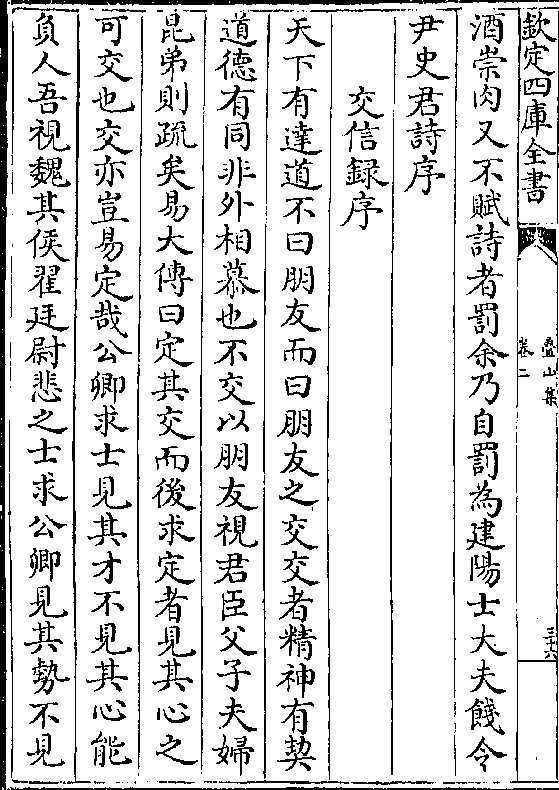 欽定四庫全書
疊山集
卷二
三十六
酒崇肉又不賦詩者罰余乃自罰為建陽士大夫餞令
尹史君詩序
交信録序
天下有達道不曰朋友而曰朋友之交交者精神有契
道德有同非外相慕也不交以朋友視君臣父子夫婦
昆弟則疏矣易大傳曰定其交而後求定者見其心之
可交也交亦豈易定哉公卿求士見其才不見其心能
負人吾視魏其侯翟廷尉悲之士求公卿見其勢不見